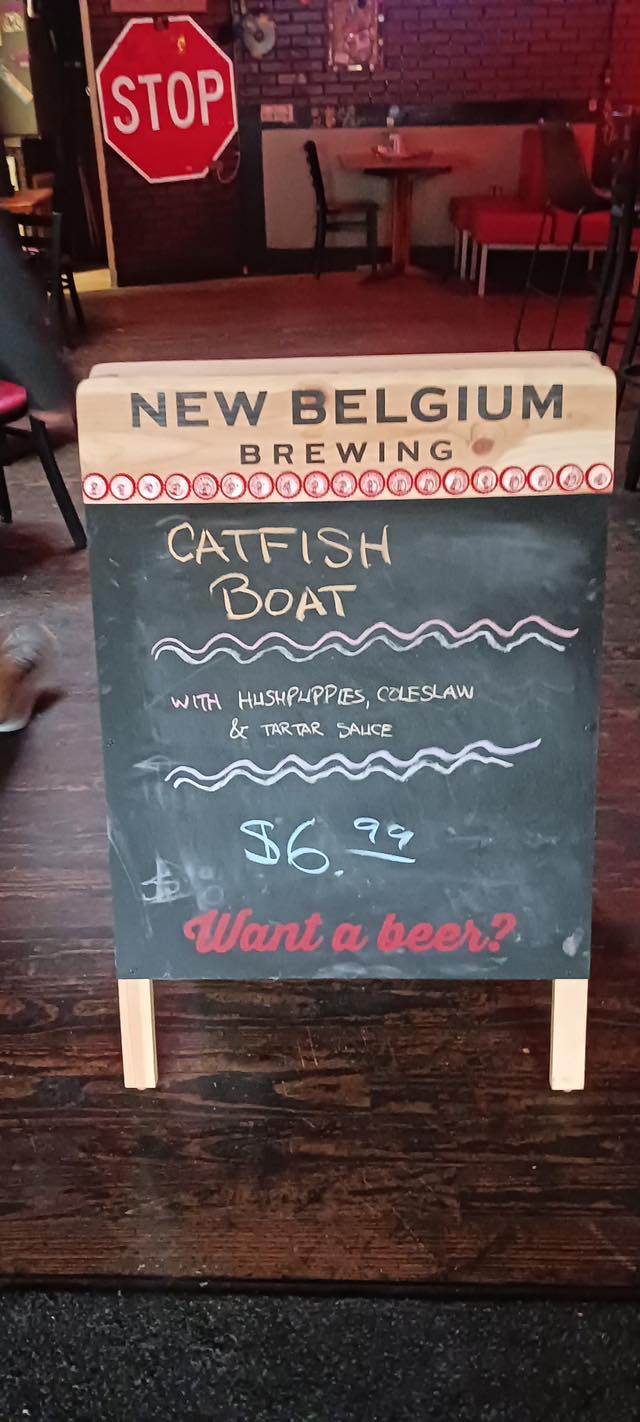 STOP
NEW BELGIUM
BREWING
CATFISH
BOAT
WITH HUSHPUPPIES, COLESLAW
& TARTAR SAUCE
$6.99
Want a beer?